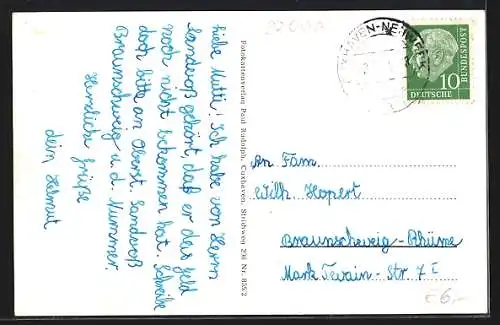 Liebe Mutti! Ich habe von Herrn
Sandvoß gehört, daß er das Geld
noch nicht bekommen hat. Schreibe
doch bitte an Oberst. Sandvoß
Braunschweig u. d. Nummer.
Herzliche Grüße
dein Helmut
Fotokartenverlag Paul Rudolph, Cuxhaven, Strichweg 238 Nr. 855/2
10
DEUTSCHE
BUNDESPOST
An Fam.
Wilh. Hopert
Braunschweig-Rhüme
Mark Twain-Str. 7 I
€6,-